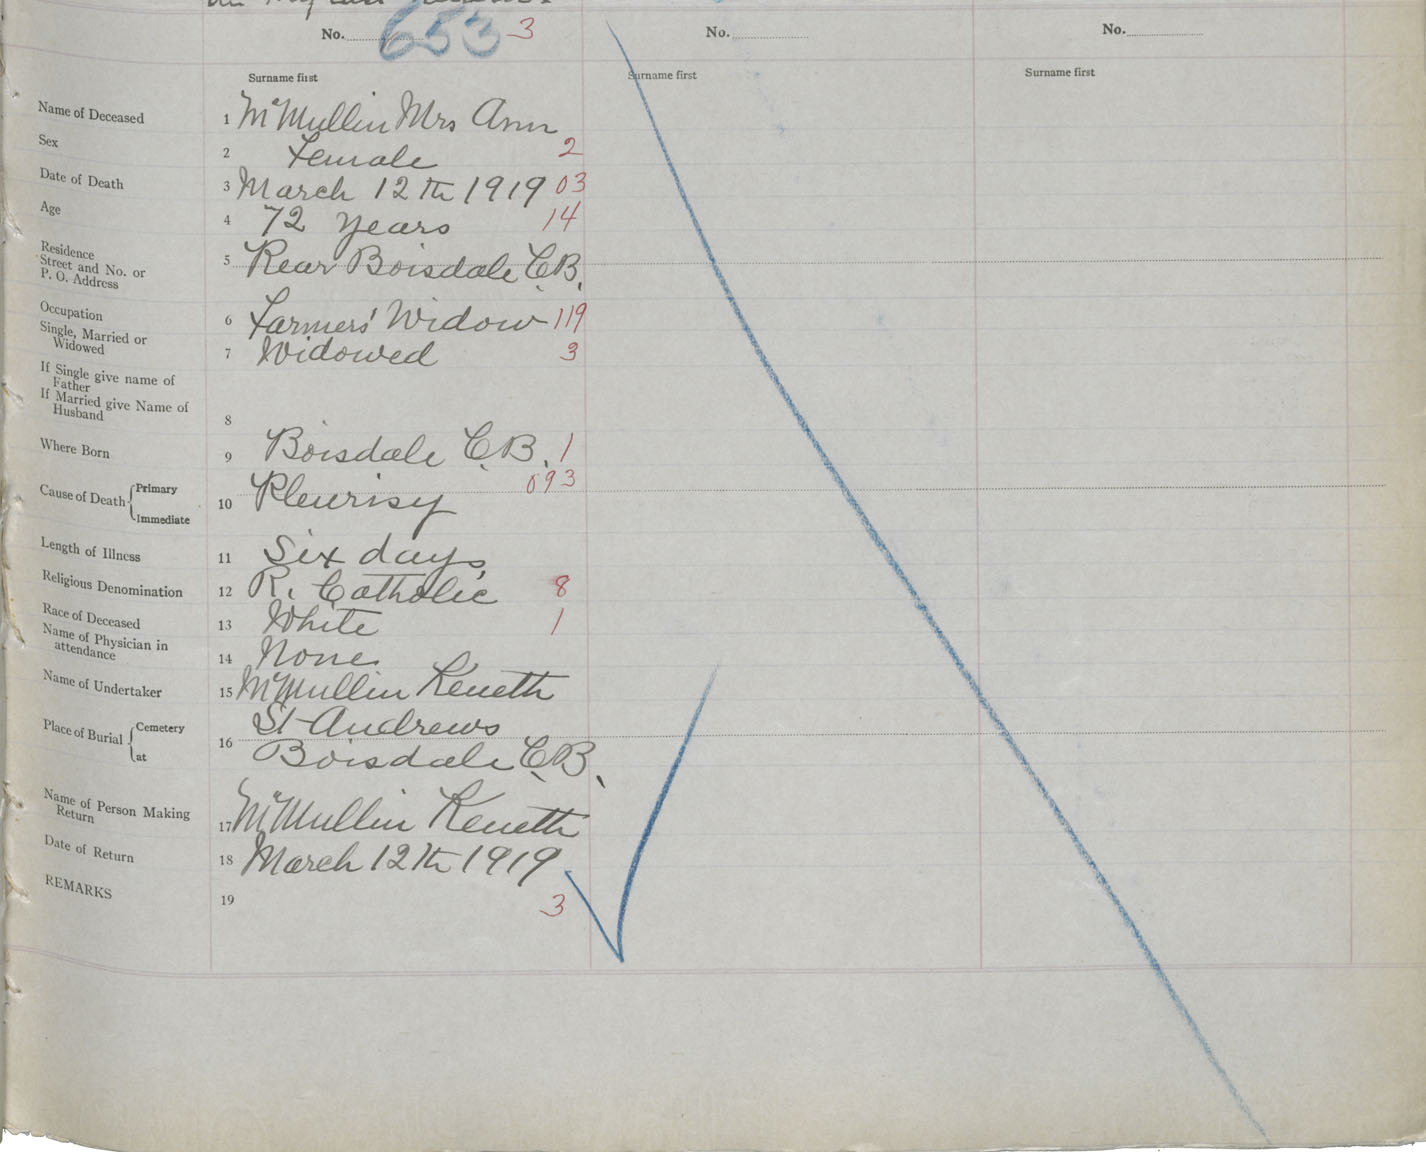 No. 653 3 No. No.
Surname first Surname first Surname first
Name of Deceased 1 McMullin Mrs Ann
Sex 2 Female 2
Date of Death 3 March 12th 1919 03
Age 4 72 Years 14
Residence
Street and No. or 5 Rear Boisdale C.B.
P. O. Address
Occupation 6 Farmers' Widow 119
Single, Married or 7 Widowed 3
Widowed
If Single give name of
Father
If Married give Name of
Husband 8
Where Born 9 Boisdale C.B. 1
Cause of Death { Primary 10 Pleurisy 093
Immediate
Length of Illness 11 Six days
Religious Denomination 12 R. Catholic 8
Race of Deceased 13 White 1
Name of Physician in
attendance 14 None
Name of Undertaker 15 McMullin Keneth
Place of Burial { Cemetery 16 St Andrews
at Boisdale C.B.
Name of Person Making
Return 17 McMullin Keneth
Date of Return 18 March 12th 1919
REMARKS 19 3